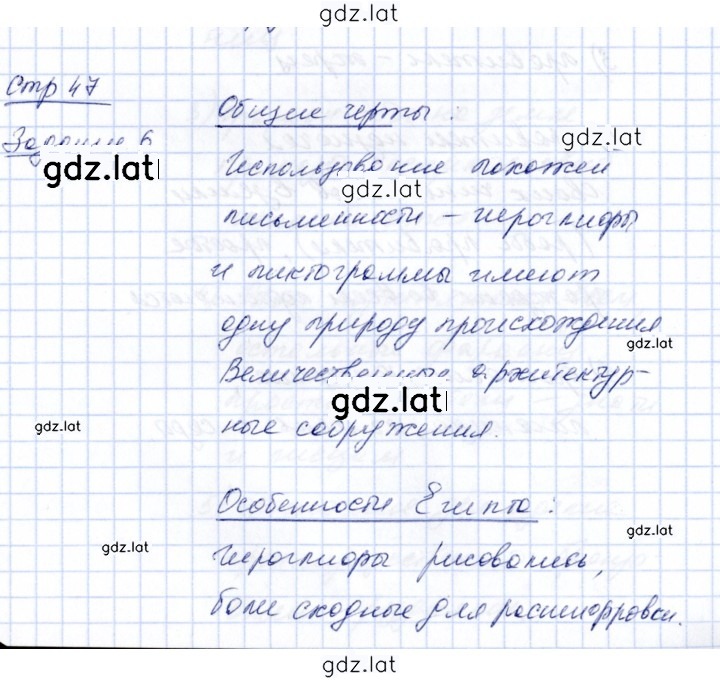 gdz.lat
Стр 47
Общие черты:
Задание 6
gdz.lat
gdz.lat
Использование похожей
gdz.lat
письменности – иероглифы
и пиктограммы имеют
одну природу происхождения
gdz.lat
Величественные архитектур-
gdz.lat
gdz.lat
ные сооружения.
Особенности Египта:
gdz.lat
gdz.lat
иероглифы рисовались,
были сходные для расшифровки.
gdz.lat